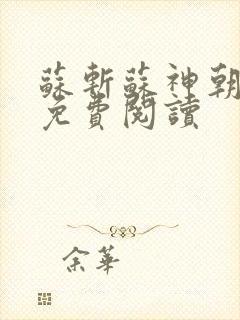 蘇斬蘇神朝
免費閱讀
余華